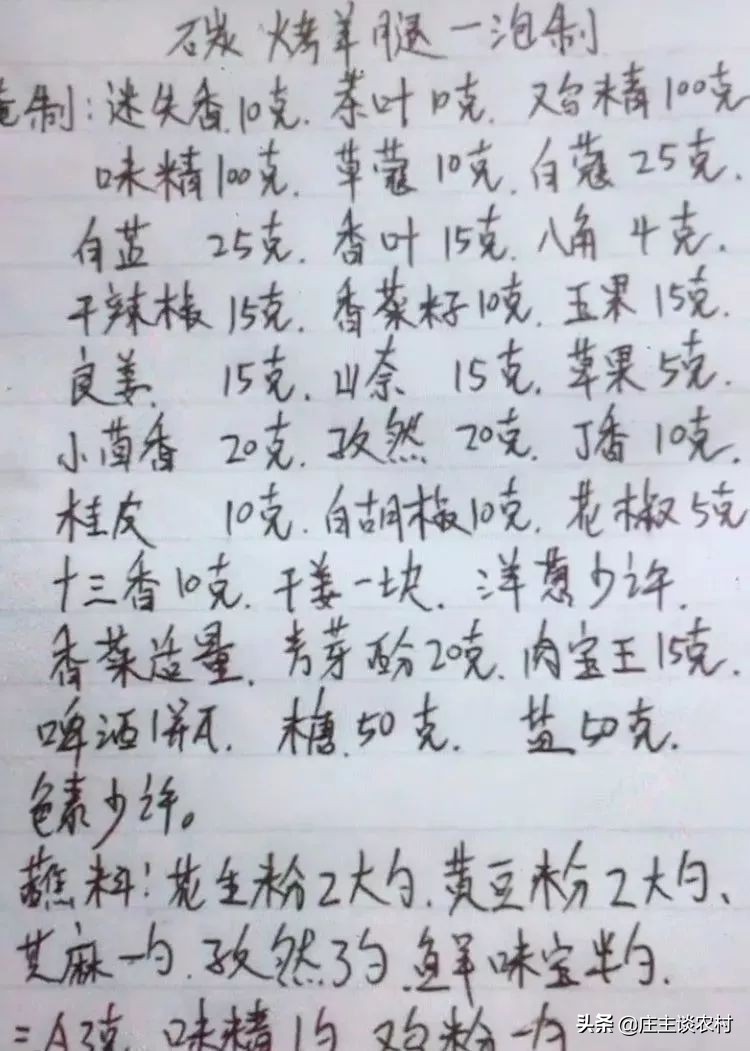 碳烤羊腿一泡制
腌制:迷失香10克.茶叶10克.鸡精100克
味精100克.草蔻10克.白蔻25克.
白蓝 25克.香叶15克.八角4克.
干辣椒15克.香菜籽10克.玉果15克.
良姜 15克.山奈 15克.草果5克.
小茴香 20克.孜然 20克.丁香10克.
桂皮 10克.白胡椒10克.花椒5克
十三香10克.干姜一块.洋葱少许.
香菜适量.麦芽酚20克.肉宝王15克.
啤酒1瓶.糖50克. 盐50克.
色素少许。
蘸料:花生粉2大勺.黄豆粉2大勺、
芝麻一勺.孜然3勺 鲜味宝半勺.
二A3克 味精1勺 鸡粉一勺
头条 @庄主谈农村